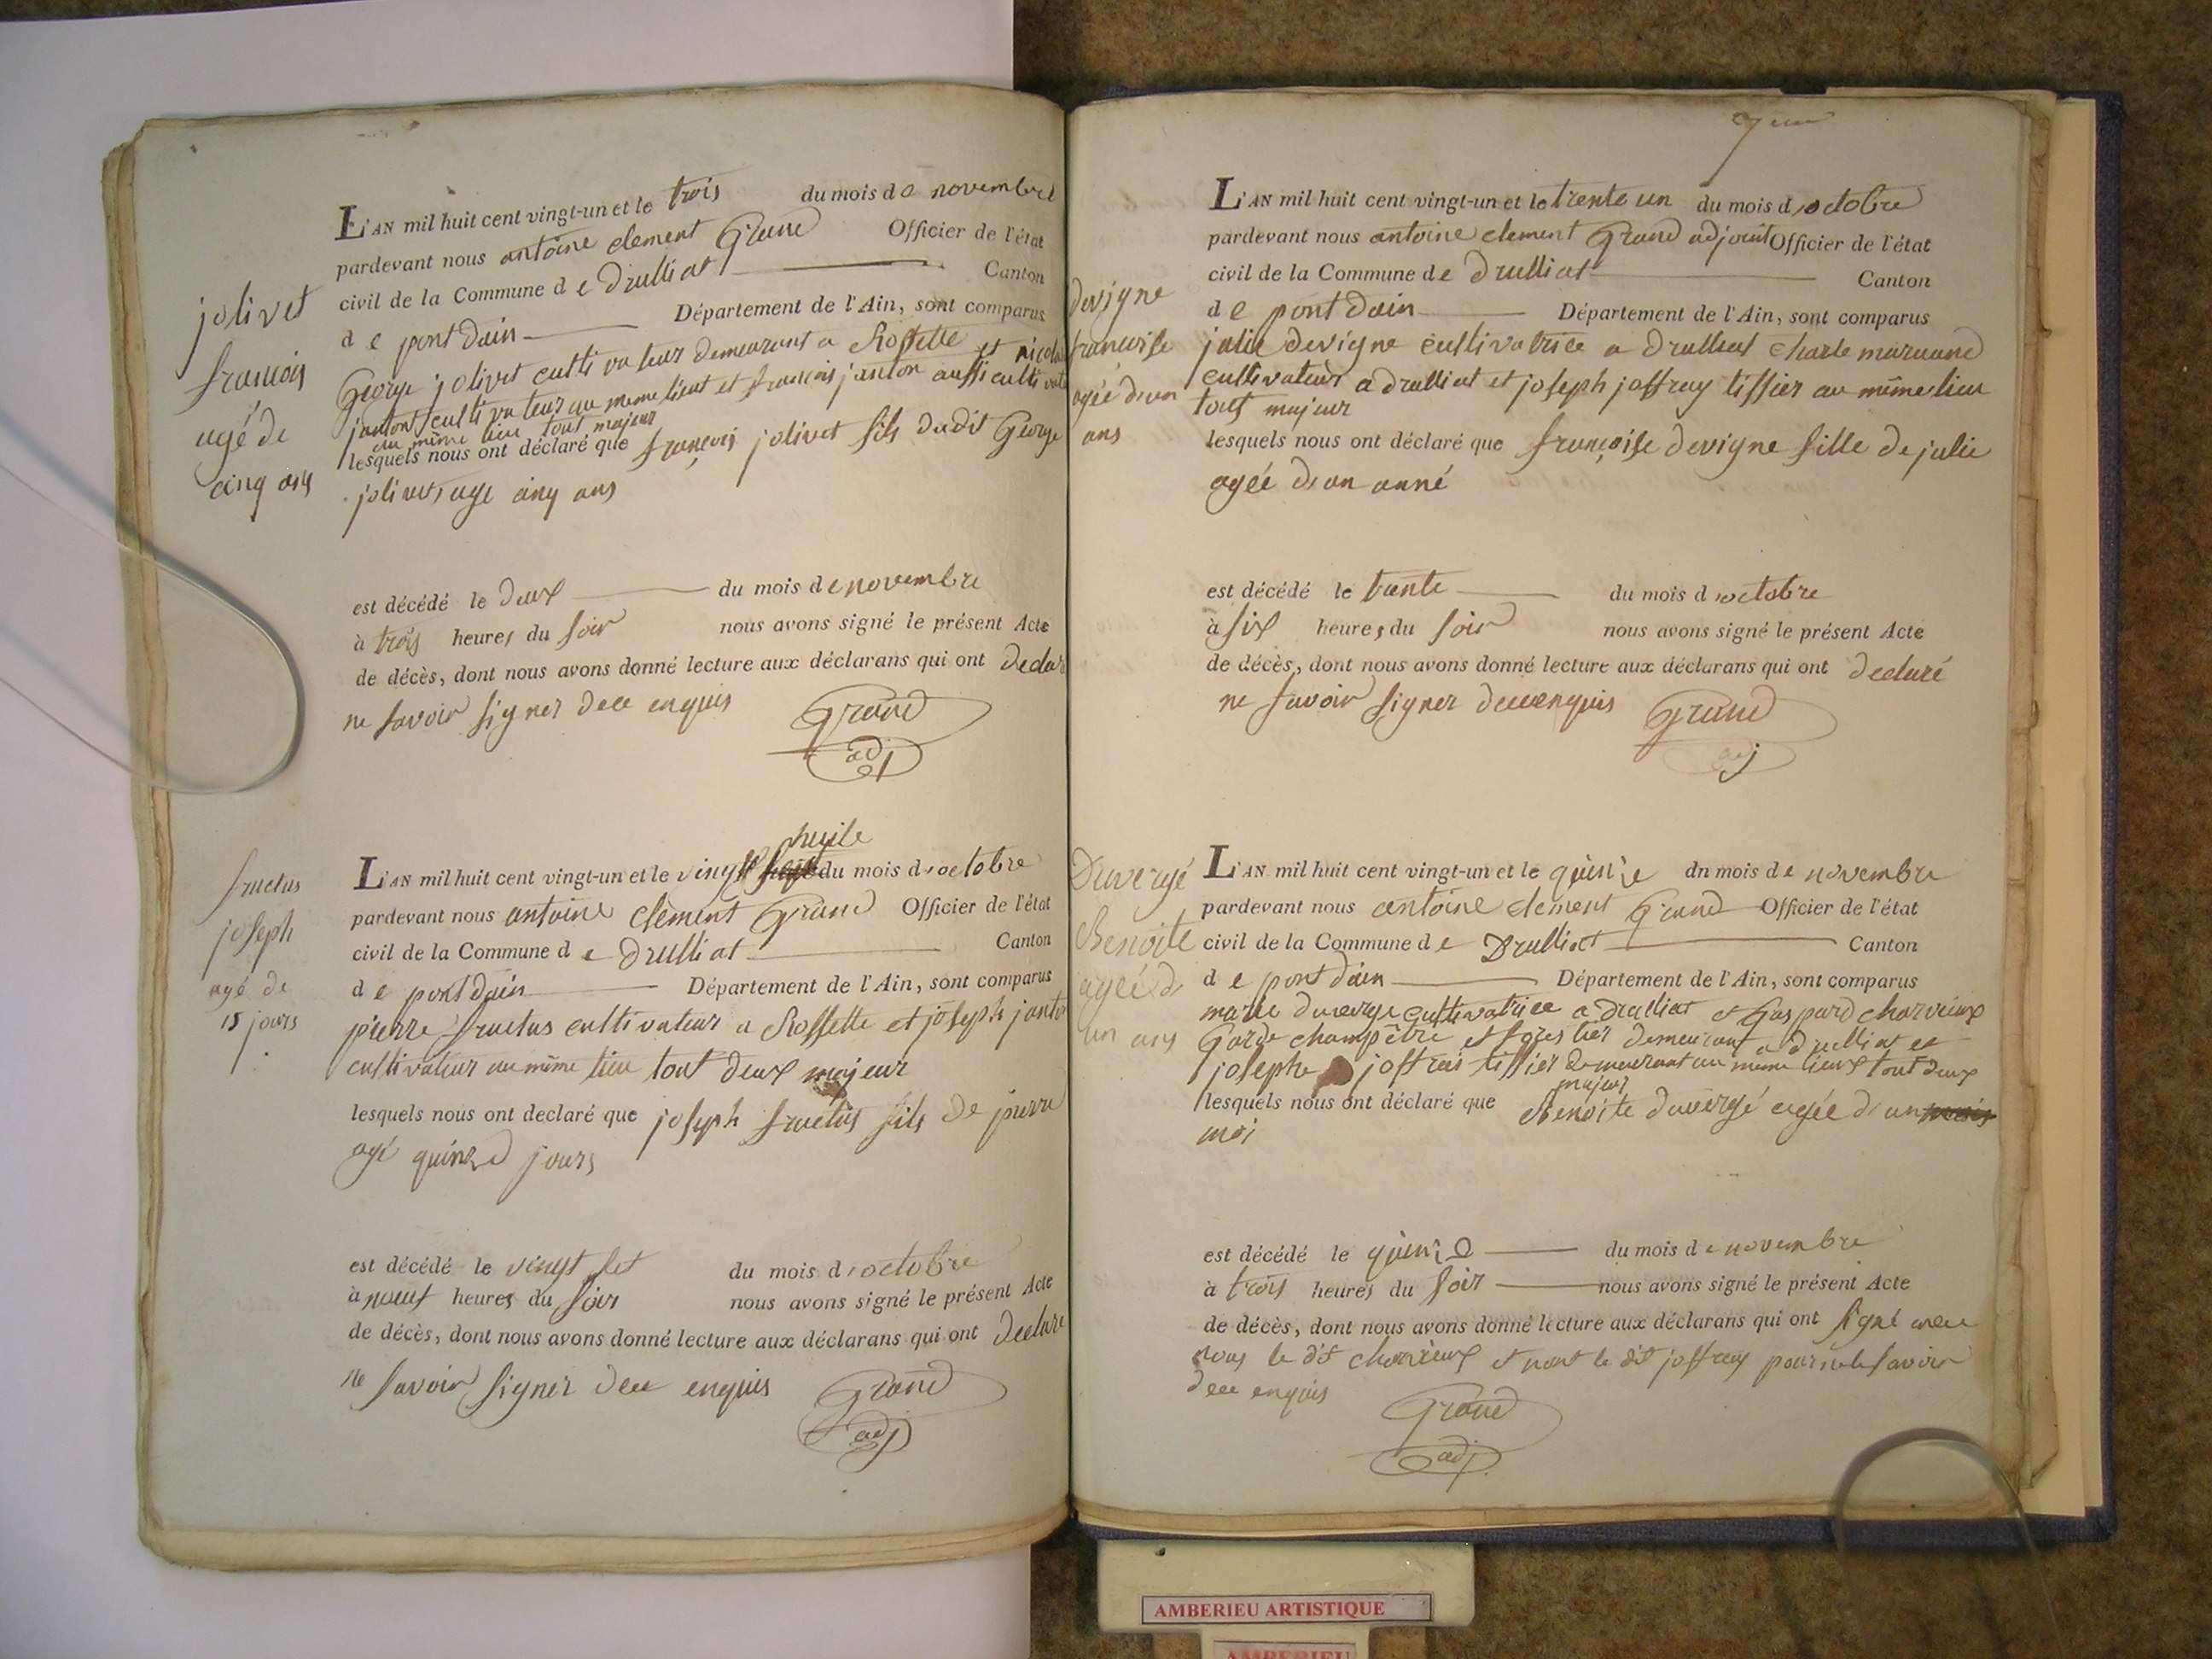 jolivet
francois
agé de
cinq ans
L'AN mil huit cent vingt-un et le trois du mois de novembre
pardevant nous antoine clement Grand Officier de l'état
civil de la Commune de Drulliat Canton
de pont Dain Département de l'Ain, sont comparus
George jolivet cultivateur demeurant a Rossette et nicolas
janton cultivateur au meme lieut et francois janton aussi cultivate
au même lieu tout majeur
lesquels nous ont déclaré que françois jolivet fils dudit George
jolivet, age cinq ans
est décédé le deux du mois de novembre
à trois heures du soir nous avons signé le présent Acte
de décès, dont nous avons donné lecture aux déclarans qui ont declar
ne savoir signer dece enquis Grand
adj
fructus
joseph
agé de
15 jours
L'AN mil huit cent vingt-un et le vingt huite du mois d'octobre
pardevant nous antoine clement Grand Officier de l'état
civil de la Commune de Drulliat Canton
de pont Dain Département de l'Ain, sont comparus
pierre fructus cultivateur a Rossette et joseph janto
cultivateur au même lieu tout deux majeur
lesquels nous ont declaré que joseph fructus fils de pierre
agé quinze jours
est décédé le vingt set du mois d'octobre
à neuf heures du soir nous avons signé le présent Acte
de décès, dont nous avons donné lecture aux déclarans qui ont declare
ne savoir signer dece enquis Grand
adj
7eme
devigne
francoise
agée d'un
ans
L'AN mil huit cent vingt-un et le trente un du mois d'octobre
pardevant nous antoine clement Grand adjoint Officier de l'état
civil de la Commune de Drulliat Canton
de pont Dain Département de l'Ain, sont comparus
julie devigne cultivatrice a drulliat charle maruand
cultivateur a drulliat et joseph joffray tissier au même lieu
tout majeur
lesquels nous ont déclaré que françoise devigne fille de julie
agée d'un anné
est décédé le trente du mois d'octobre
à six heures du soir nous avons signé le présent Acte
de décès, dont nous avons donné lecture aux déclarans qui ont declaré
ne savoir signer dece enquis Grand
adj
Duvergé
Benoite
agée d
un ans
L'AN mil huit cent vingt-un et le quinze dn mois de novembre
pardevant nous antoine clement Grand Officier de l'état
civil de la Commune de Drulliat Canton
de pont Dain Département de l'Ain, sont comparus
marie duverge cultivatrice a drulliat et Gaspard charvieux
Garde champêtre et forestier demeurant a drulliat et
josephe joffrai tissier demeurant au meme lieux tout deux
majeur
lesquels nous ont déclaré que Benoite duvergé agée d'un
moi
est décédé le quinze du mois de novembre
à trois heures du soir nous avons signé le présent Acte
de décès, dont nous avons donné lecture aux déclarans qui ont signé avec
nous le dit charvieux et nont le dit joffray pour ne le savoir
dece enquis Grand
adj
AMBERIEU ARTISTIQUE
AMBERIEU